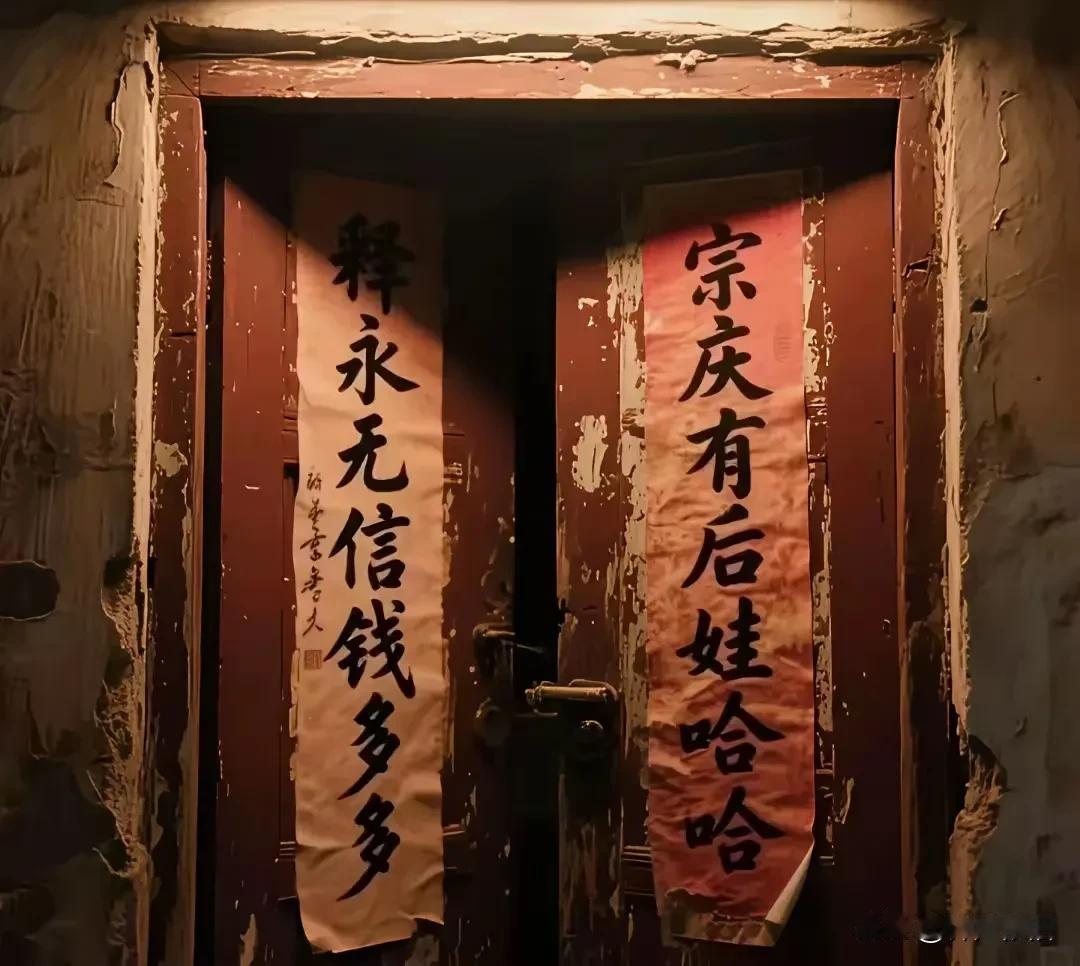 宗庆有后娃哈哈
释永无信钱多多